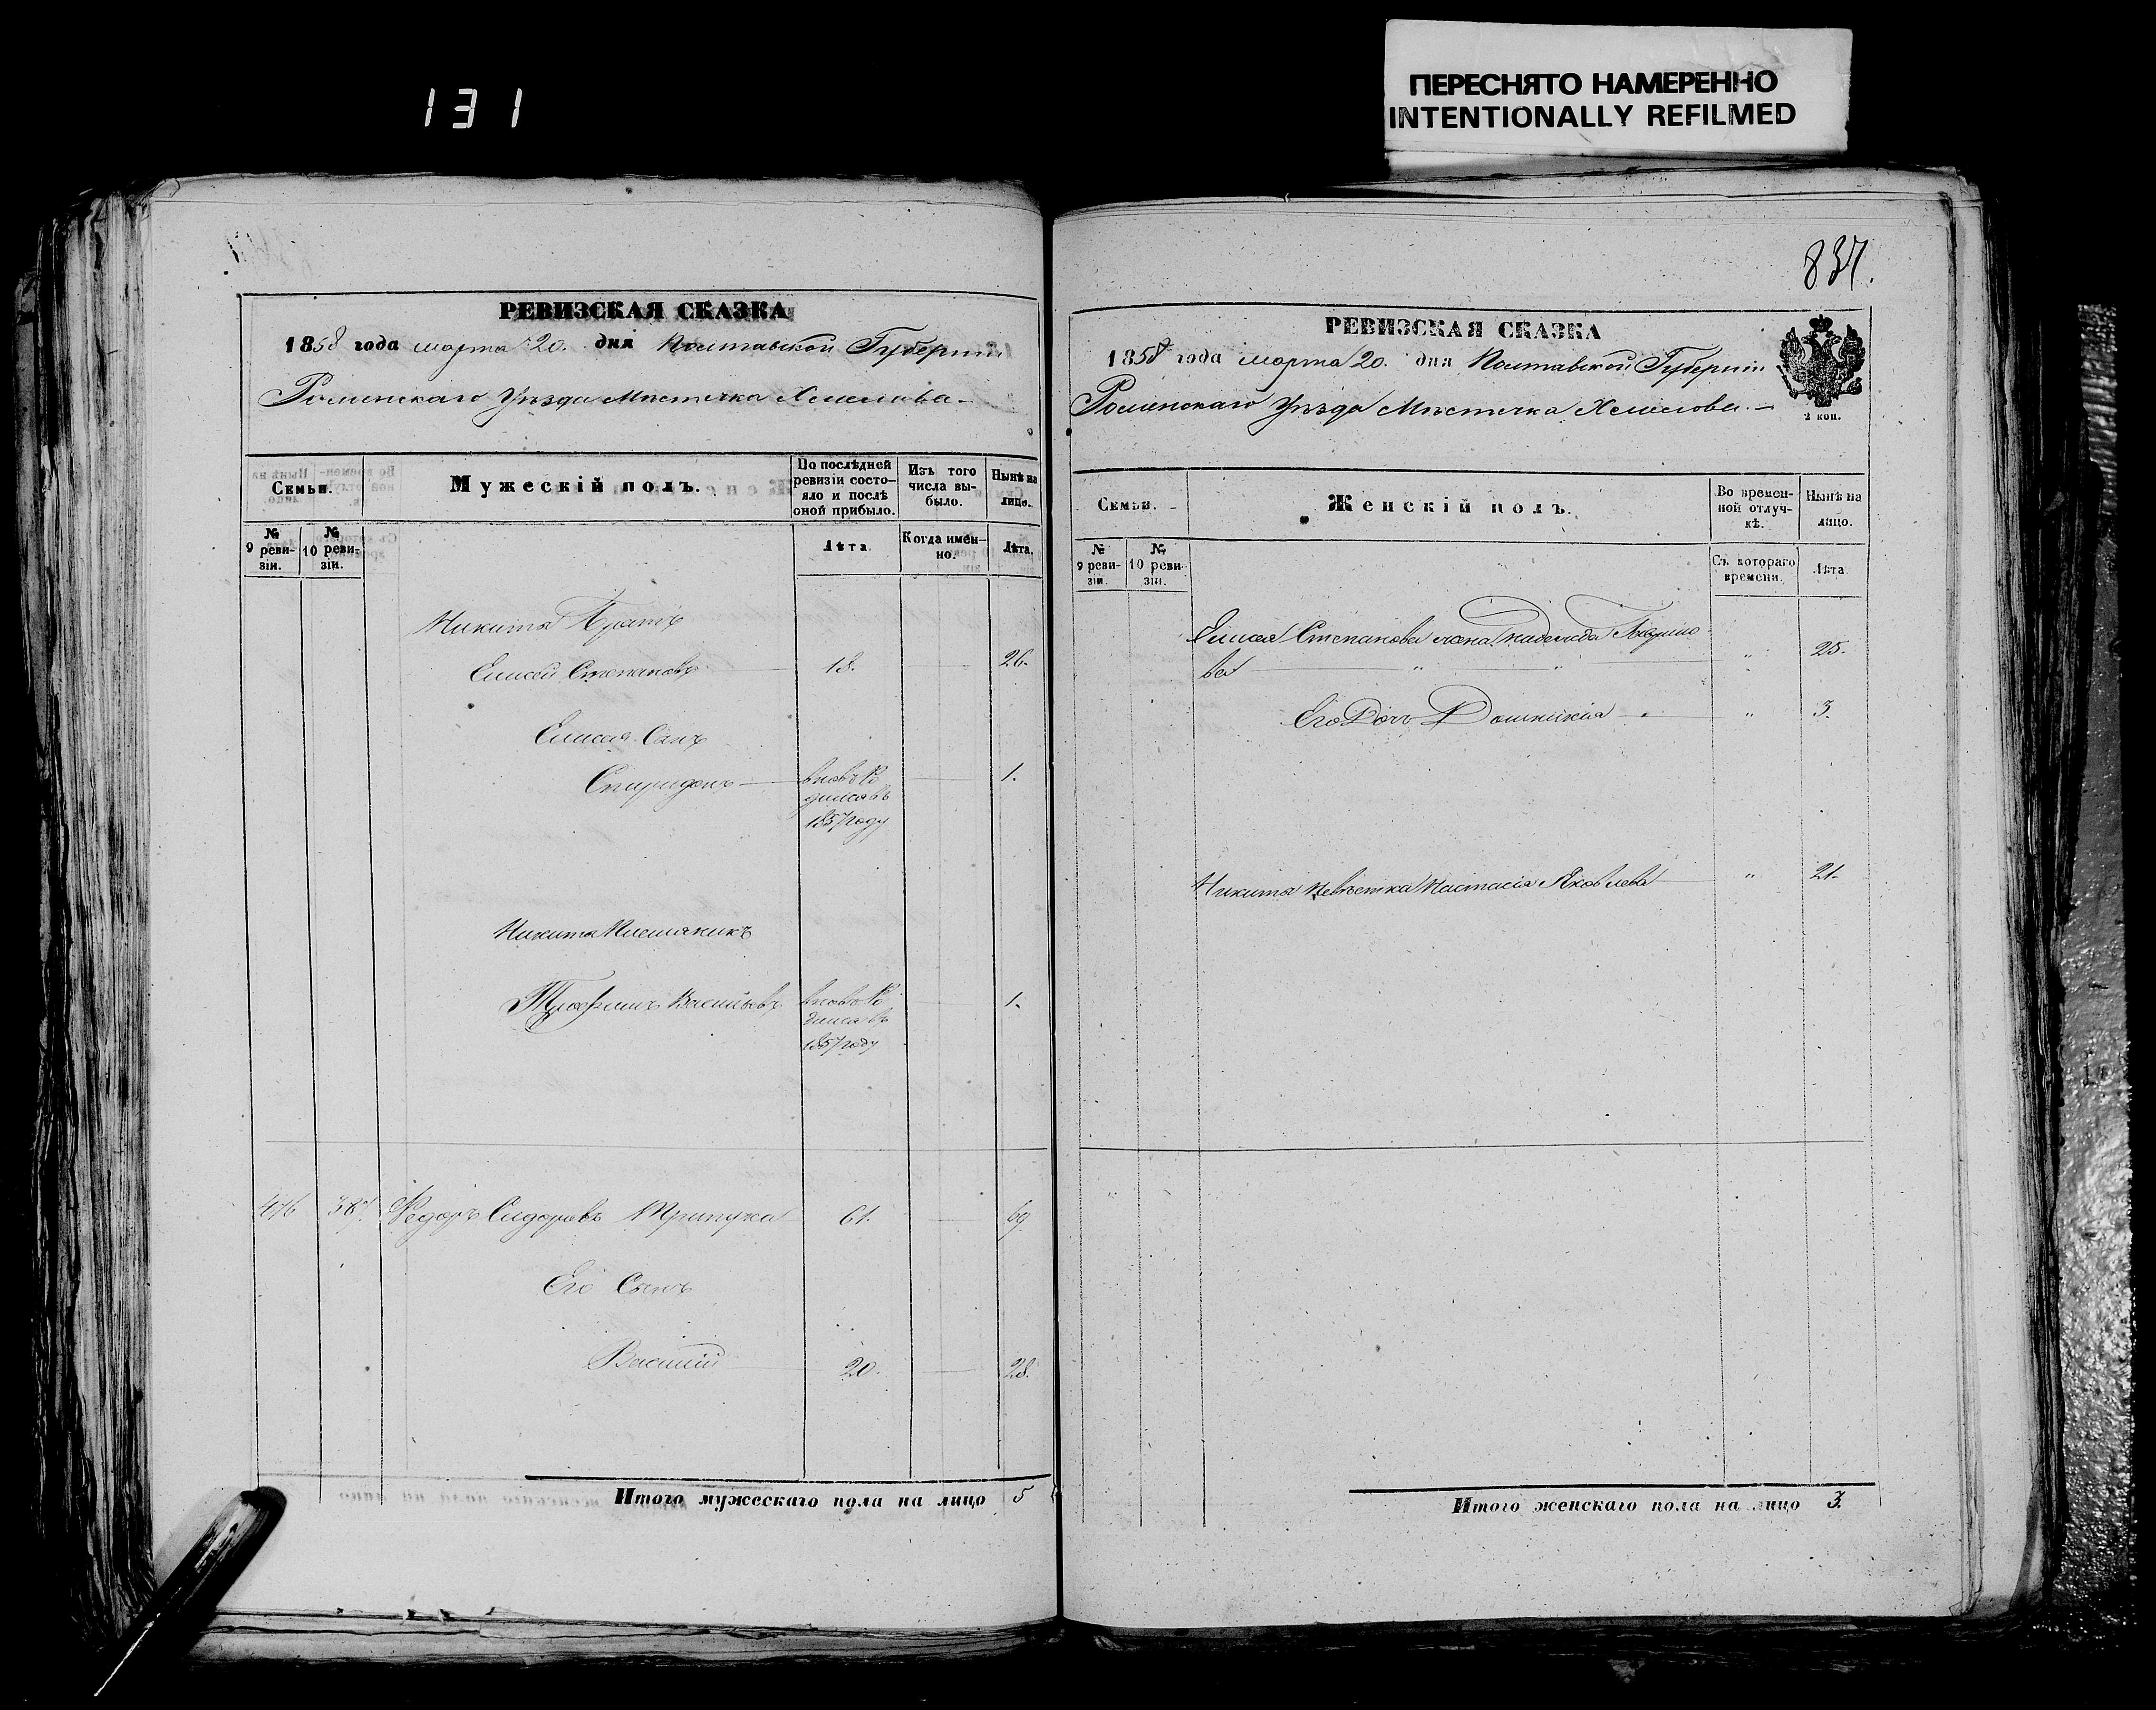 131
ПЕРЕСНЯТО НАМЕРЕННО
INTENTIONALLY REFILMED
РЕВИЗСКАЯ СКАЗКА
1858 года марта 20. дня Полтавской Губерніи
Роменскаго Уѣзда Мѣстечка Хмелова
Семьи.
Мужескій полъ.
По послѣдней ревизіи состояло и послѣ оной прибыло.
Изъ того числа выбыло.
Нынѣ на лицо.
№ 9 ревизіи.
№ 10 ревизіи.
Лѣта
Когда именно.
Лѣта.
Никиты Братъ
Елисей Степановъ 18. 26.
Елисея Сынъ
Спиридонъ вновь Ро 1.
дился въ
1857 году
Никиты Племяникъ
Трофимъ Васильевъ вновь Ро 1.
дился въ
1857 году
476 Федоръ Сидоровъ 61. 69
Его Сынъ
Василій 20. 28.
Итого мужескаго пола на лицо 5
837.
РЕВИЗСКАЯ СКАЗКА
1858 года марта 20. дня Полтавской Губерніи
Роменскаго Уѣзда Мѣстечка Хмелова
2 коп.
Семьи.
Женскій полъ.
Во временной отлучкѣ.
Нынѣ на лицо.
№ 9 ревизіи.
№ 10 ревизіи.
Съ котораго времени.
Лѣта
Елисея Степанова жена
ва " " " 25.
Его Дочь Домникія " 3.
Никиты Невѣстка Настасія Яковлева " 21.
Итого женскаго пола на лицо 3.